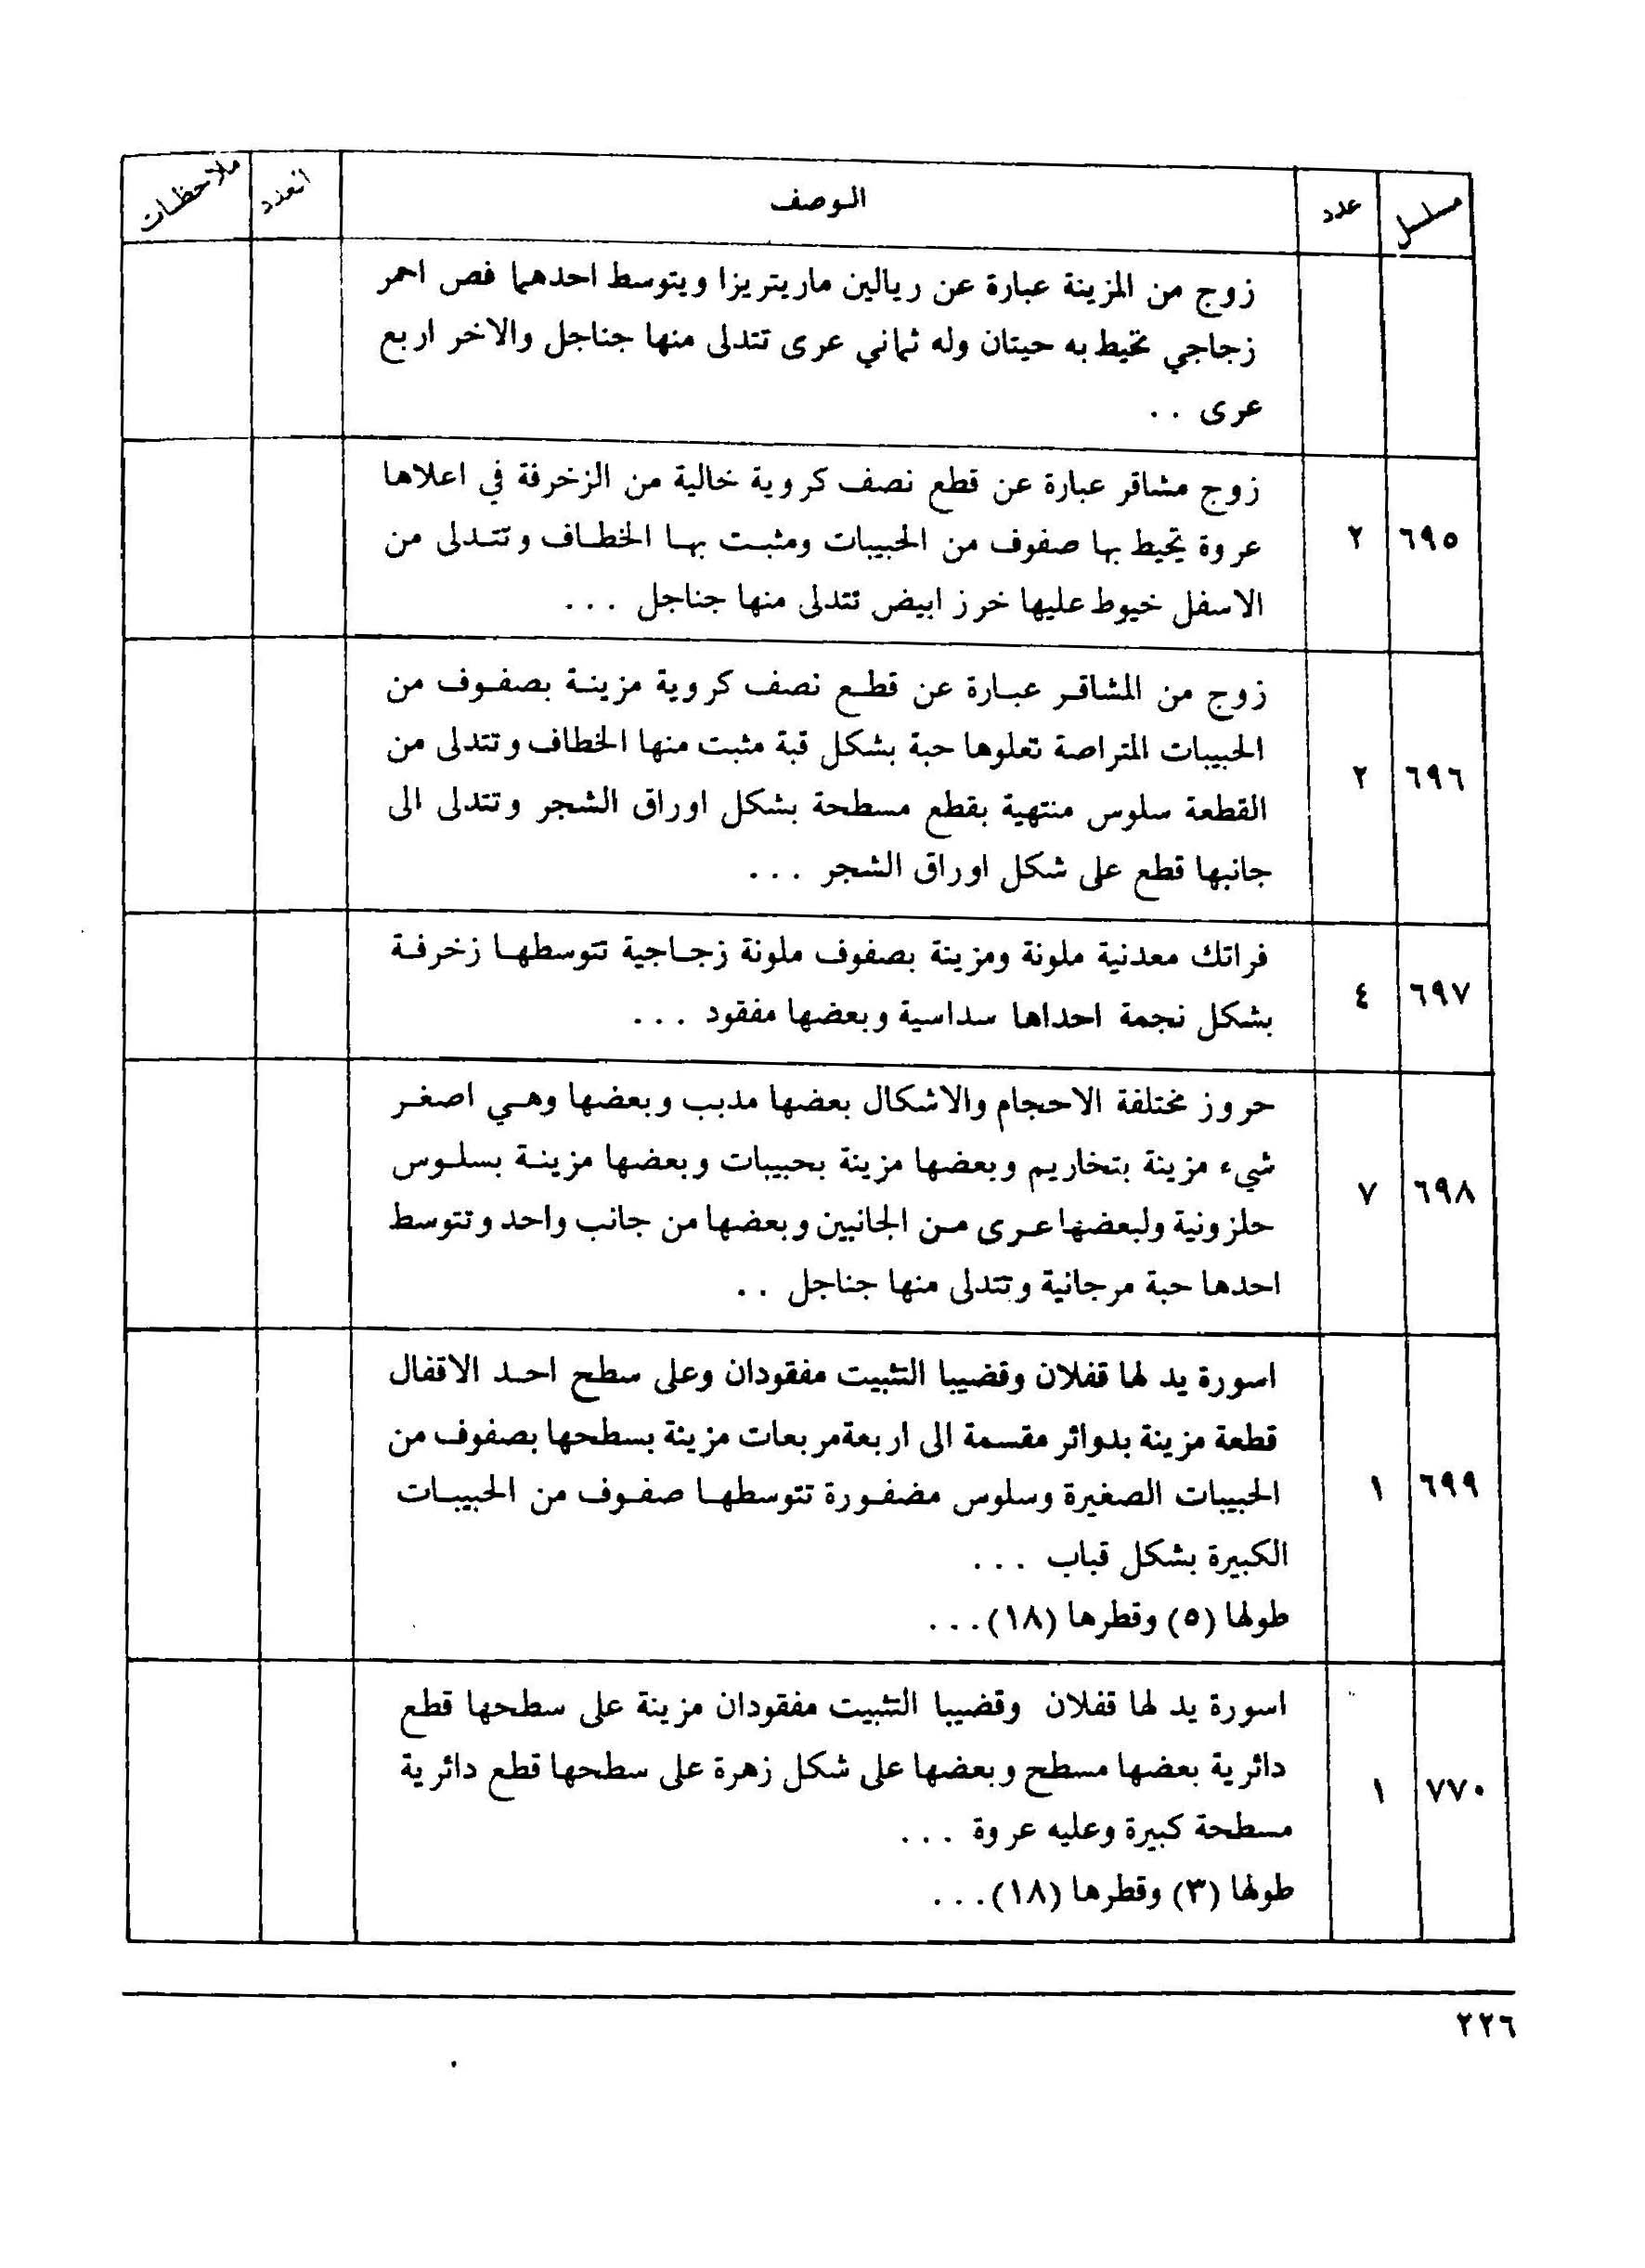 مسلسل عدد الوصف العدد ملاحظات
زوج من المزينة عبارة عن ريالين ماريتريزا ويتوسط احدهما فص احمر
زجاجي تحيط به حيتان وله ثماني عرى تتدلى منها جناجل والاخر اربع
عرى . .
زوج مشاقر عبارة عن قطع نصف كروية خالية من الزخرفة في اعلاها
٦٩٥ ٢ عروة يحيط بها صفوف من الحبيبات ومثبت بها الخطاف وتتدلى من
الاسفل خيوط عليها خرز ابيض تتدلى منها جناجل . . .
زوج من المشاقر عبارة عن قطع نصف كروية مزينة بصفوف من
٦٩٦ ٢ الحبيبات المتراصة تعلوها حبة بشكل قبة مثبت منها الخطاف وتتدلى من
القطعة سلوس منتهية بقطع مسطحة بشكل اوراق الشجر وتتدلى الى
جانبها قطع على شكل اوراق الشجر . . .
فراتك معدنية ملونة ومزينة بصفوف ملونة زجاجية تتوسطها زخرفة
٦٩٧ ٤ بشكل نجمة احداها سداسية وبعضها مفقود . . .
حروز مختلفة الاحجام والاشكال بعضها مدبب وبعضها وهي اصغر
٦٩٨ ٧ شيء مزينة بتخاريم وبعضها مزينة بحبيبات وبعضها مزينة بسلوس
حلزونية ولبعضها عرى من الجانبين وبعضها من جانب واحد وتتوسط
احدها حبة مرجانية وتتدلى منها جناجل . .
اسورة يد لها قفلان وقضيبا التثبيت مفقودان وعلى سطح احد الاقفال
قطعة مزينة بدوائر مقسمة الى اربعة مربعات مزينة بسطحها بصفوف من
٦٩٩ ١ الحبيبات الصغيرة وسلوس مضفورة تتوسطها صفوف من الحبيبات
الكبيرة بشكل قباب . . .
طولها (٥) وقطرها (١٨) . . .
اسورة يد لها قفلان وقضيبا التثبيت مفقودان مزينة على سطحها قطع
٧٧٠ ١ دائرية بعضها مسطح وبعضها على شكل زهرة على سطحها قطع دائرية
مسطحة كبيرة وعليه عروة . . .
طولها (٣) وقطرها (١٨) . . .
٢٢٦